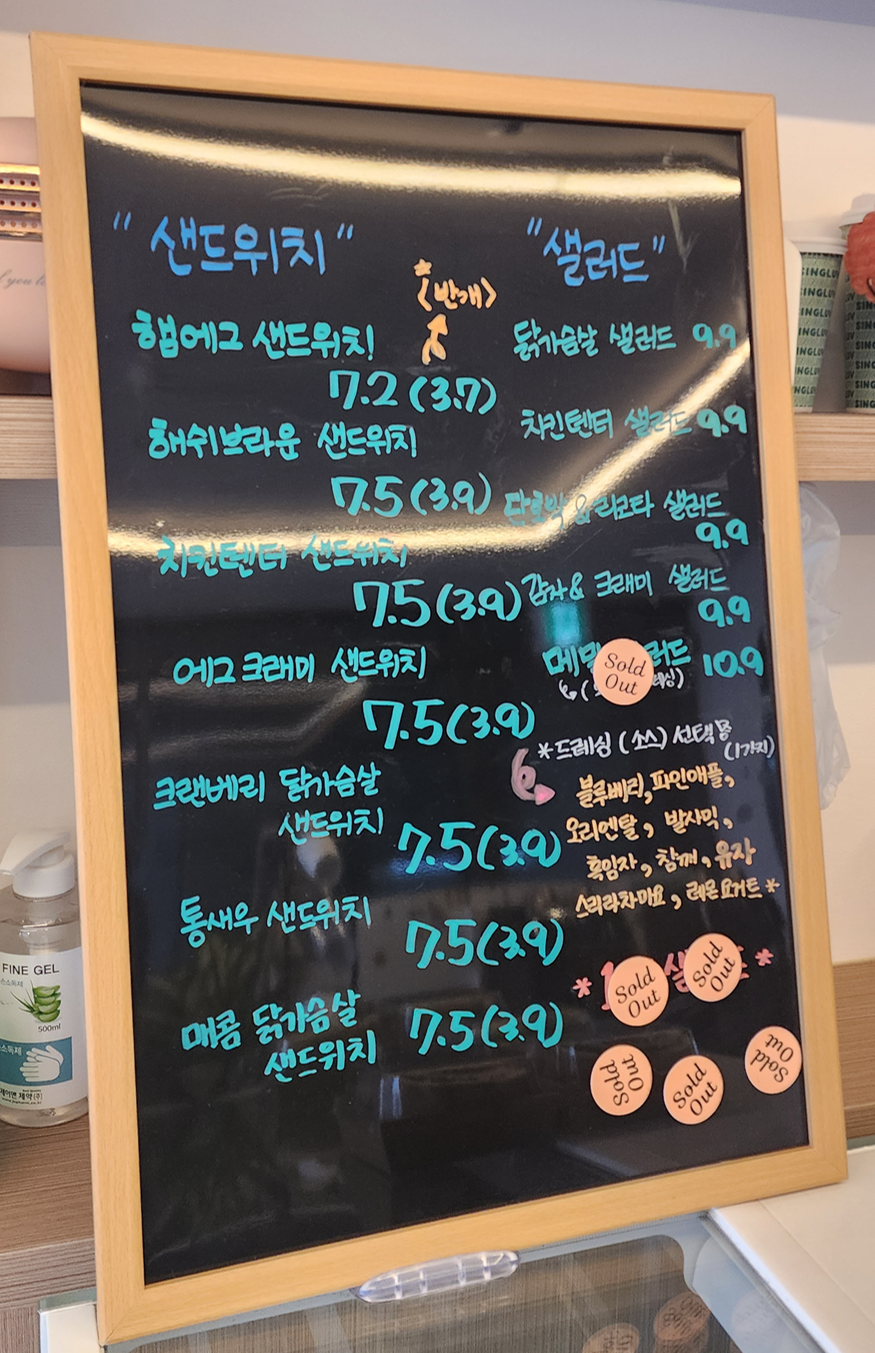 "샌드위치"
*
(반개)
햄에그 샌드위치
7.2 (3.7)
해쉬브라운 샌드위치
7.5 (3.9)
치킨텐더 샌드위치
7.5 (3.9)
에그크래미 샌드위치
7.5 (3.9)
크랜베리 닭가슴살
샌드위치
7.5 (3.9)
통새우 샌드위치
7.5 (3.9)
매콤 닭가슴살
샌드위치
7.5 (3.9)
"샐러드"
닭가슴살 샐러드 9.9
치킨텐더 샐러드 9.9
단호박 & 리코타 샐러드
9.9
감자 & 크래미 샐러드
9.9
10.9
Sold
Out
* 드레싱 (소스) 선택
(1가지)
블루베리, 파인애플,
오리엔탈, 발사믹,
흑임자, 참깨, 유자
스리라차마요, 레몬요거트 *
* *
Sold
Out
Sold
Out
Sold
Out
Sold
Out
Sold
Out
FINE GEL
500ml
SINGLUV
SINGLUV